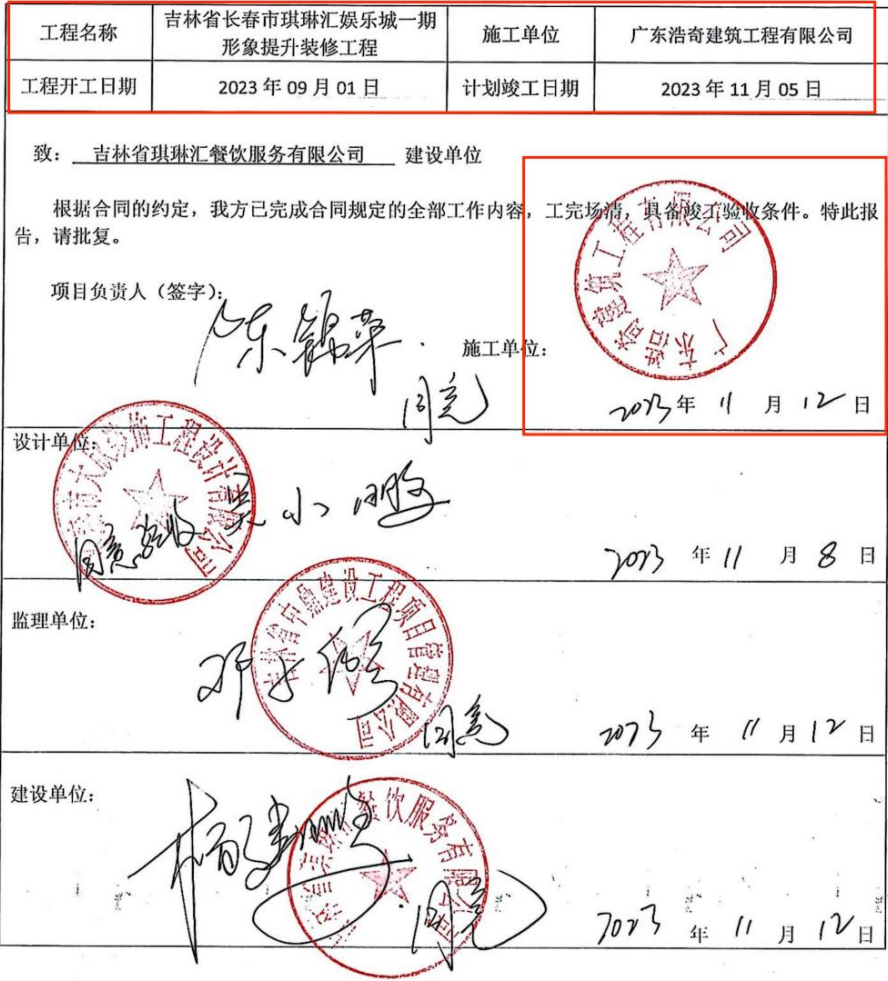 工程名称
吉林省长春市琪琳汇娱乐城一期
形象提升装修工程
施工单位
广东浩奇建筑工程有限公司
工程开工日期
2023 年 09 月 01 日
计划竣工日期
2023 年 11 月 05 日
致： 吉林省琪琳汇餐饮服务有限公司 建设单位
根据合同的约定，我方已完成合同规定的全部工作内容，工完场清，具备竣工验收条件。特此报
告，请批复。
项目负责人（签字）：
同意
施工单位：
广东浩奇建筑工程有限公司
2023 年 11 月 12 日
设计单位：
饰工程设计有限公司
同意验收
2023 年 11 月 8 日
监理单位：
吉林省中鼎建设工程项目管理有限公司
同意
2023 年 11 月 12 日
建设单位：
餐饮服务有限公司
同意
2023 年 11 月 12 日